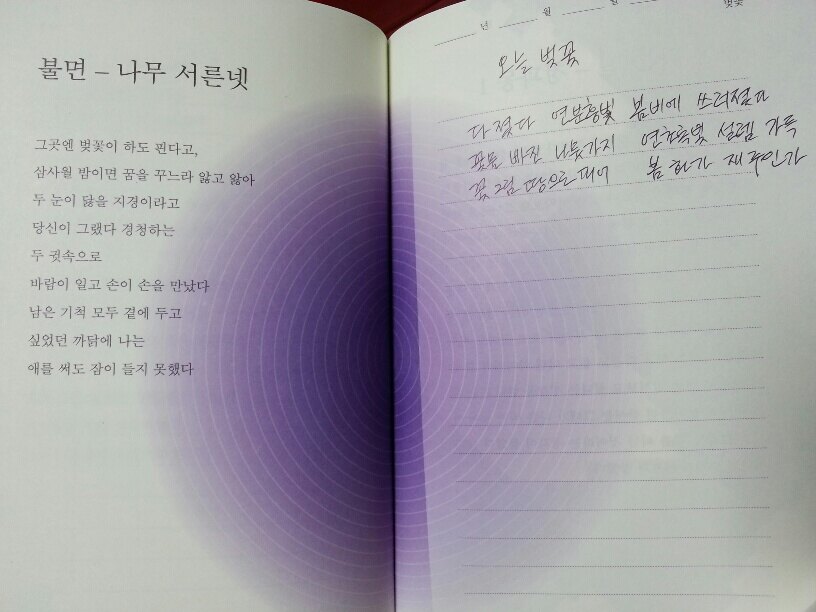 불면 – 나무 서른넷
그곳엔 벚꽃이 하도 핀다고,
삼사월 밤이면 꿈을 꾸느라 앓고 앓아
두 눈이 닳을 지경이라고
당신이 그랬다 경청하는
두 귓속으로
바람이 일고 손이 손을 만났다
남은 기척 모두 곁에 두고
싶었던 까닭에 나는
애를 써도 잠이 들지 못했다
년 월 일
벚꽃
오늘 벚꽃
다 졌다 연분홍빛 봄비에 쓰러졌다
꽃물 빠진 나뭇가지 연초록빛 설렘 가득
꽃그림 땅으로 피어 봄 한가 재주인가